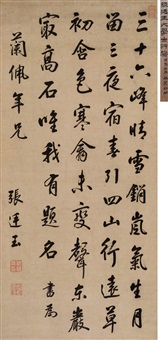 三十六峰晴雪銷嵐氣生月
留三夜宿春引四山行遠草
初含色寒禽未變聲東巖
最高石唯我有題名 書為
蘭佩年兄 張廷玉